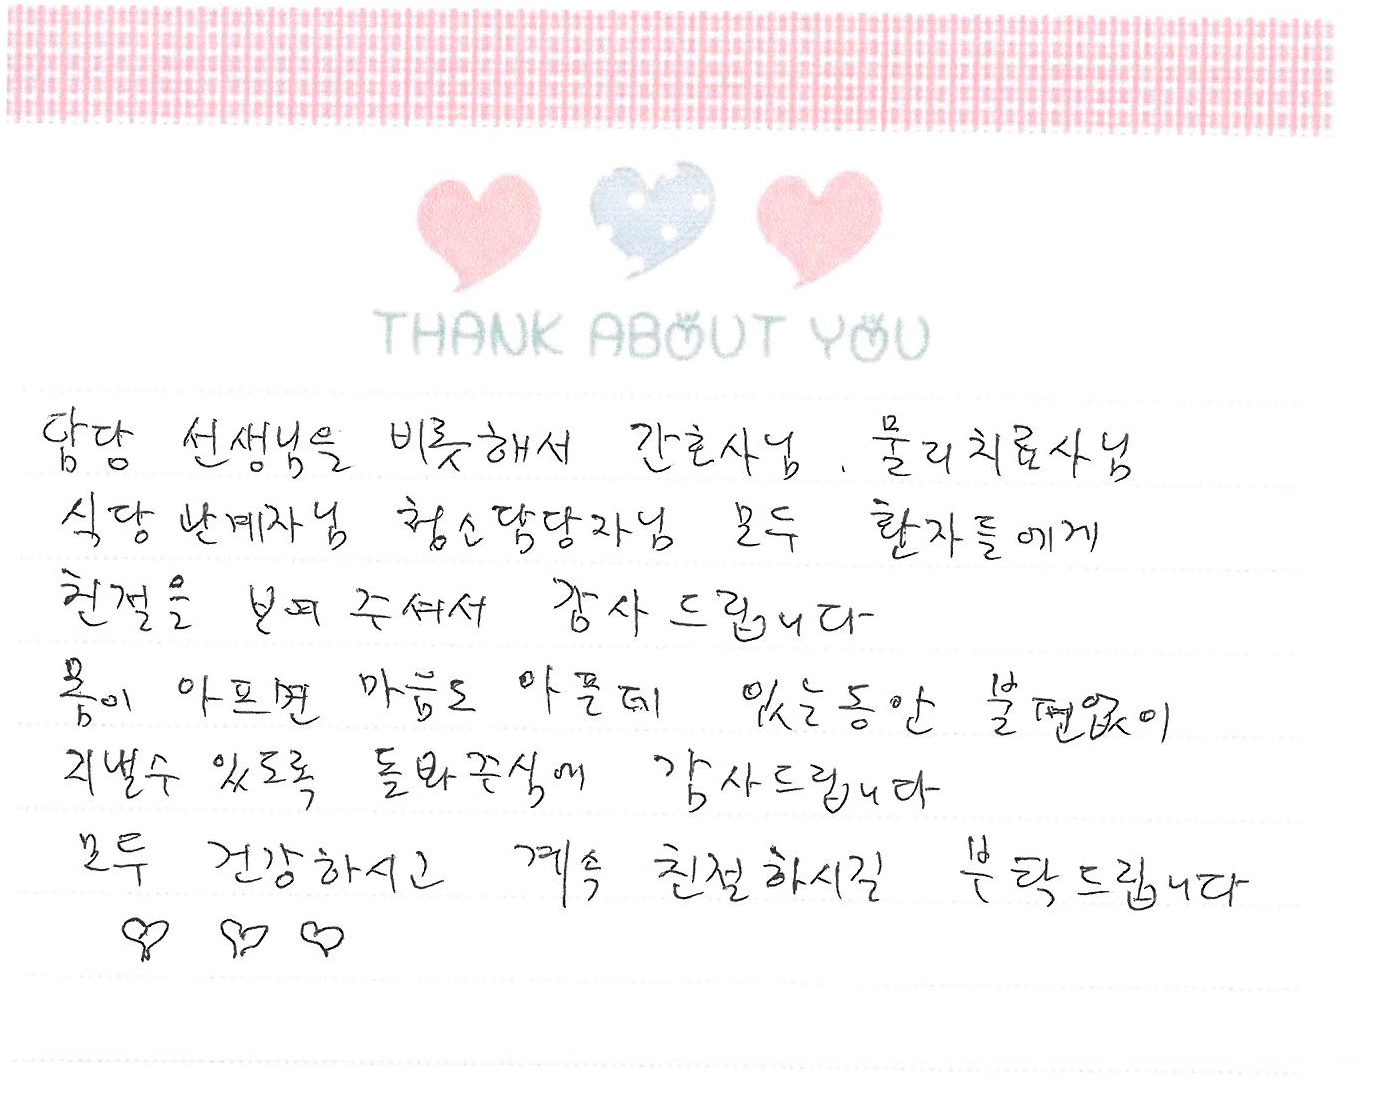 THANK ABOUT YOU
담당 선생님을 비롯해서 간호사님. 물리치료사님
식당 관계자님 청소담당자님 모두 환자들에게
친절을 보여 주셔서 감사드립니다
몸이 아프면 마음도 아픈데 있는동안 불편없이
지낼수 있도록 돌봐주심에 감사드립니다
모두 건강하시고 계속 친절하시길 부탁드립니다
♡ ♡ ♡